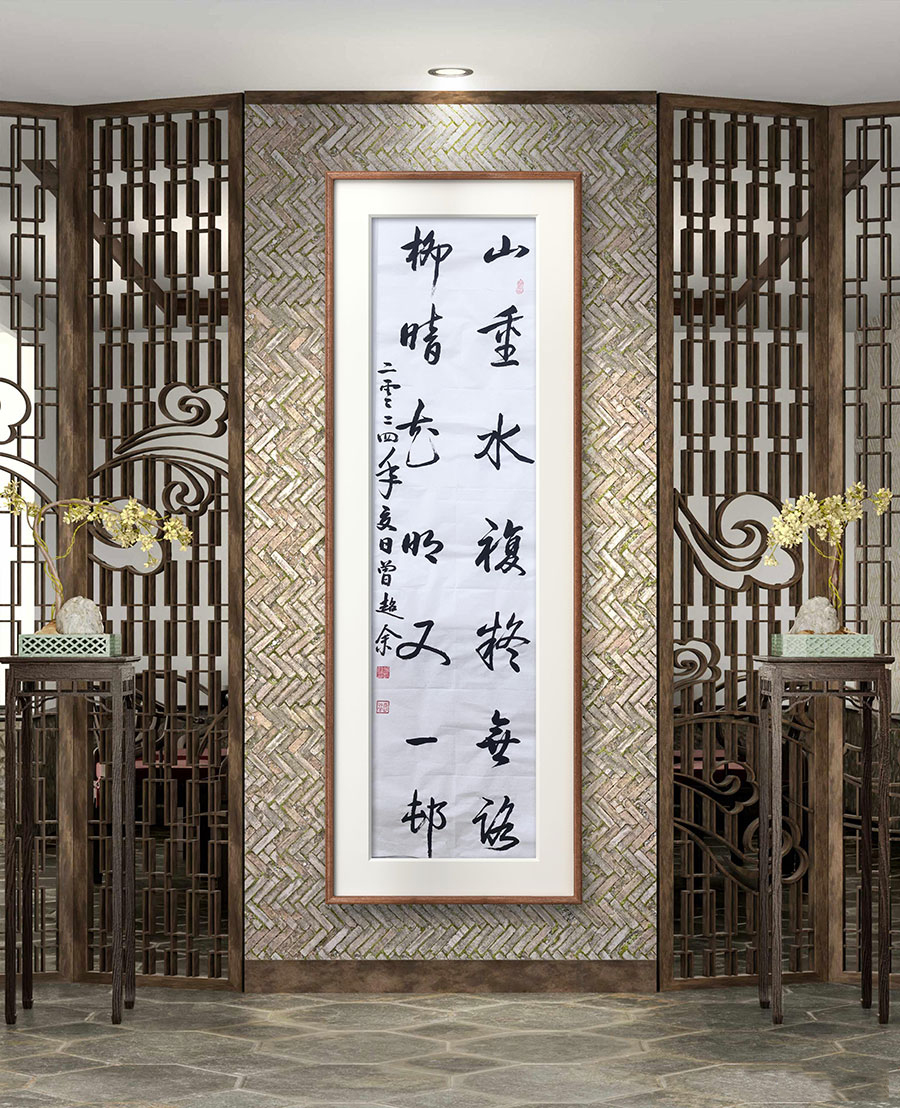 山重水複疑無路
柳暗花明又一邨
二零二四年夏日曾超余